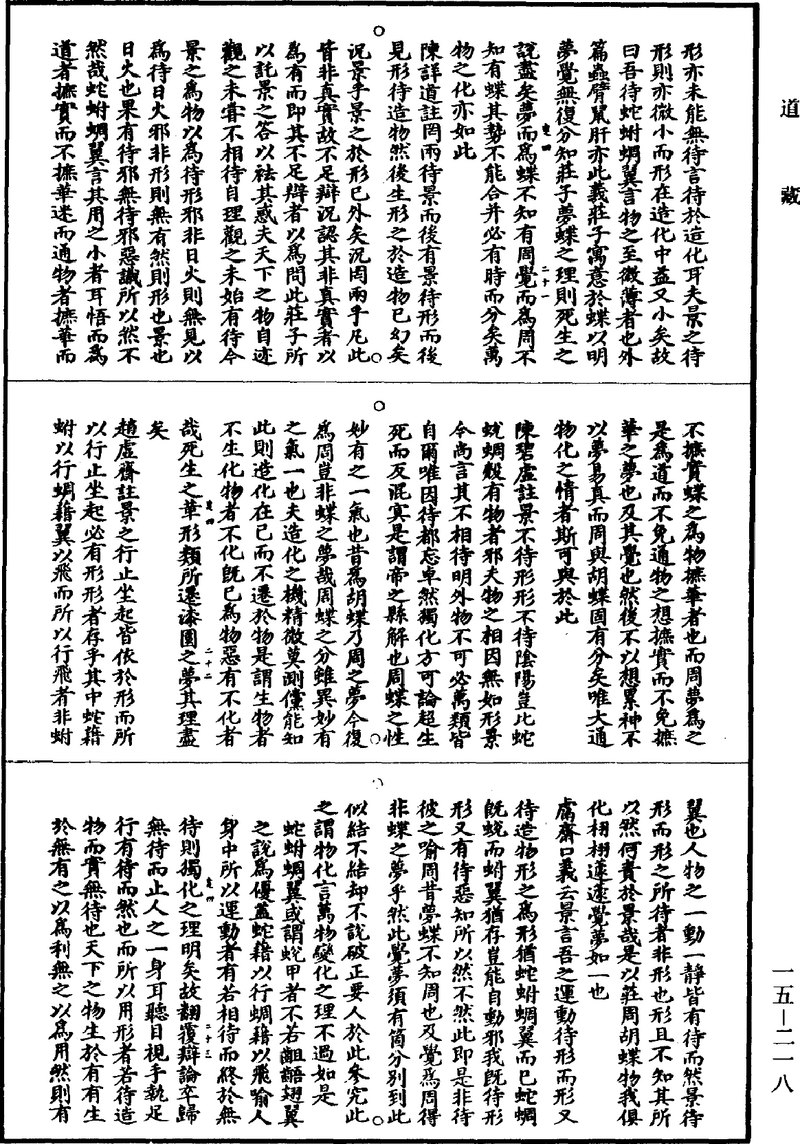 道藏
形亦未能無待言待於造化耳夫景之待
形則亦微小而形在造化中益又小矣故
曰吾待蛇蚹蜩翼言物之至微薄者也外
篇蟲臂鼠肝亦此義莊子寓意於蝶以明
夢覺無復分知莊子夢蝶之理則死生之
說盡矣夢而為蝶不知有周覺而為周不
知有蝶其勢不能合并必有時而分矣萬
物之化亦如此
陳詳道註罔兩待景而後有景待形而後
見形待造物然後生形之於造物已幻矣
況景乎景之於形已外矣況罔兩乎凡此
皆非真實故不足辯況認其非真實者以
為有而即其不足辯者以為問此莊子所
以託景之答以袪其惑夫天下之物自迹
觀之未甞不相待自理觀之未始有待今
景之為物以為待形邪非日火則無見以
為待日火邪非形則無有然則形也景也
日火也果有待邪無待邪惡識所以然不
然哉蛇蚹蜩翼言其用之小者耳悟而為
道者摭實而不摭華迷而通物者摭華而
不摭實蝶之為物摭華者也而周夢為之
是為道而不免通物之想摭實而不免摭
華之夢也及其覺也然後不以想累神不
以夢易真而周與胡蝶固有分矣唯大通
物化之情者斯可與於此
陳碧虛註景不待形形不待陰陽豈比蛇
蛻蜩殼有物者邪夫物之相因無如形景
今尚言其不相待明外物不可必萬類皆
自爾唯因待都忘卓然獨化方可論超生
死而反混冥是謂帝之縣解也周蝶之性
妙有之一氣也昔為胡蝶乃周之夢今復
為周豈非蝶之夢哉周蝶之分雖異妙有
之氣一也夫造化之機精微莫測儻能知
此則造化在己而不遷於物是謂生物者
不生化物者不化旣已為物惡有不化者
哉死生之華形類所遷漆園之夢其理盡
矣
趙虛齋註景之行止坐起皆依於形而所
以行止坐起必有形形者存乎其中蛇藉
蚹以行蜩藉翼以飛而所以行飛者非蚹
翼也人物之一動一靜皆有待而然景待
形而形之所待者非形也形且不知其所
以然何責於景哉是以莊周胡蝶物我俱
化栩栩蘧蘧覺夢如一也
鬳齋口義云景言吾之運動待形而形又
待造物形之為形猶蛇蚹蜩翼而已蛇蜩
旣蛻而蚹翼猶存豈能自動邪我旣待形
形又有待惡知所以然不然此即是非待
彼之喻周昔夢蝶不知周也及覺為周得
非蝶之夢乎然此覺夢須有箇分別到此
似結不結却不說破正要人於此參究此
之謂物化言萬物變化之理不過如是
蛇蚹蜩翼或謂蛻甲者不若齟齬翅翼
之說為優蓋蛇藉以行蜩藉以飛喻人
身中所以運動者有若相待而終於無
待則獨化之理明矣故翻覆辯論卒歸
無待而止人之一身耳聽目視手執足
行有待而然也而所以用形者若待造
物而實無待也天下之物生於有有生
於無有之以為利無之以為用然則有
一五—二一八